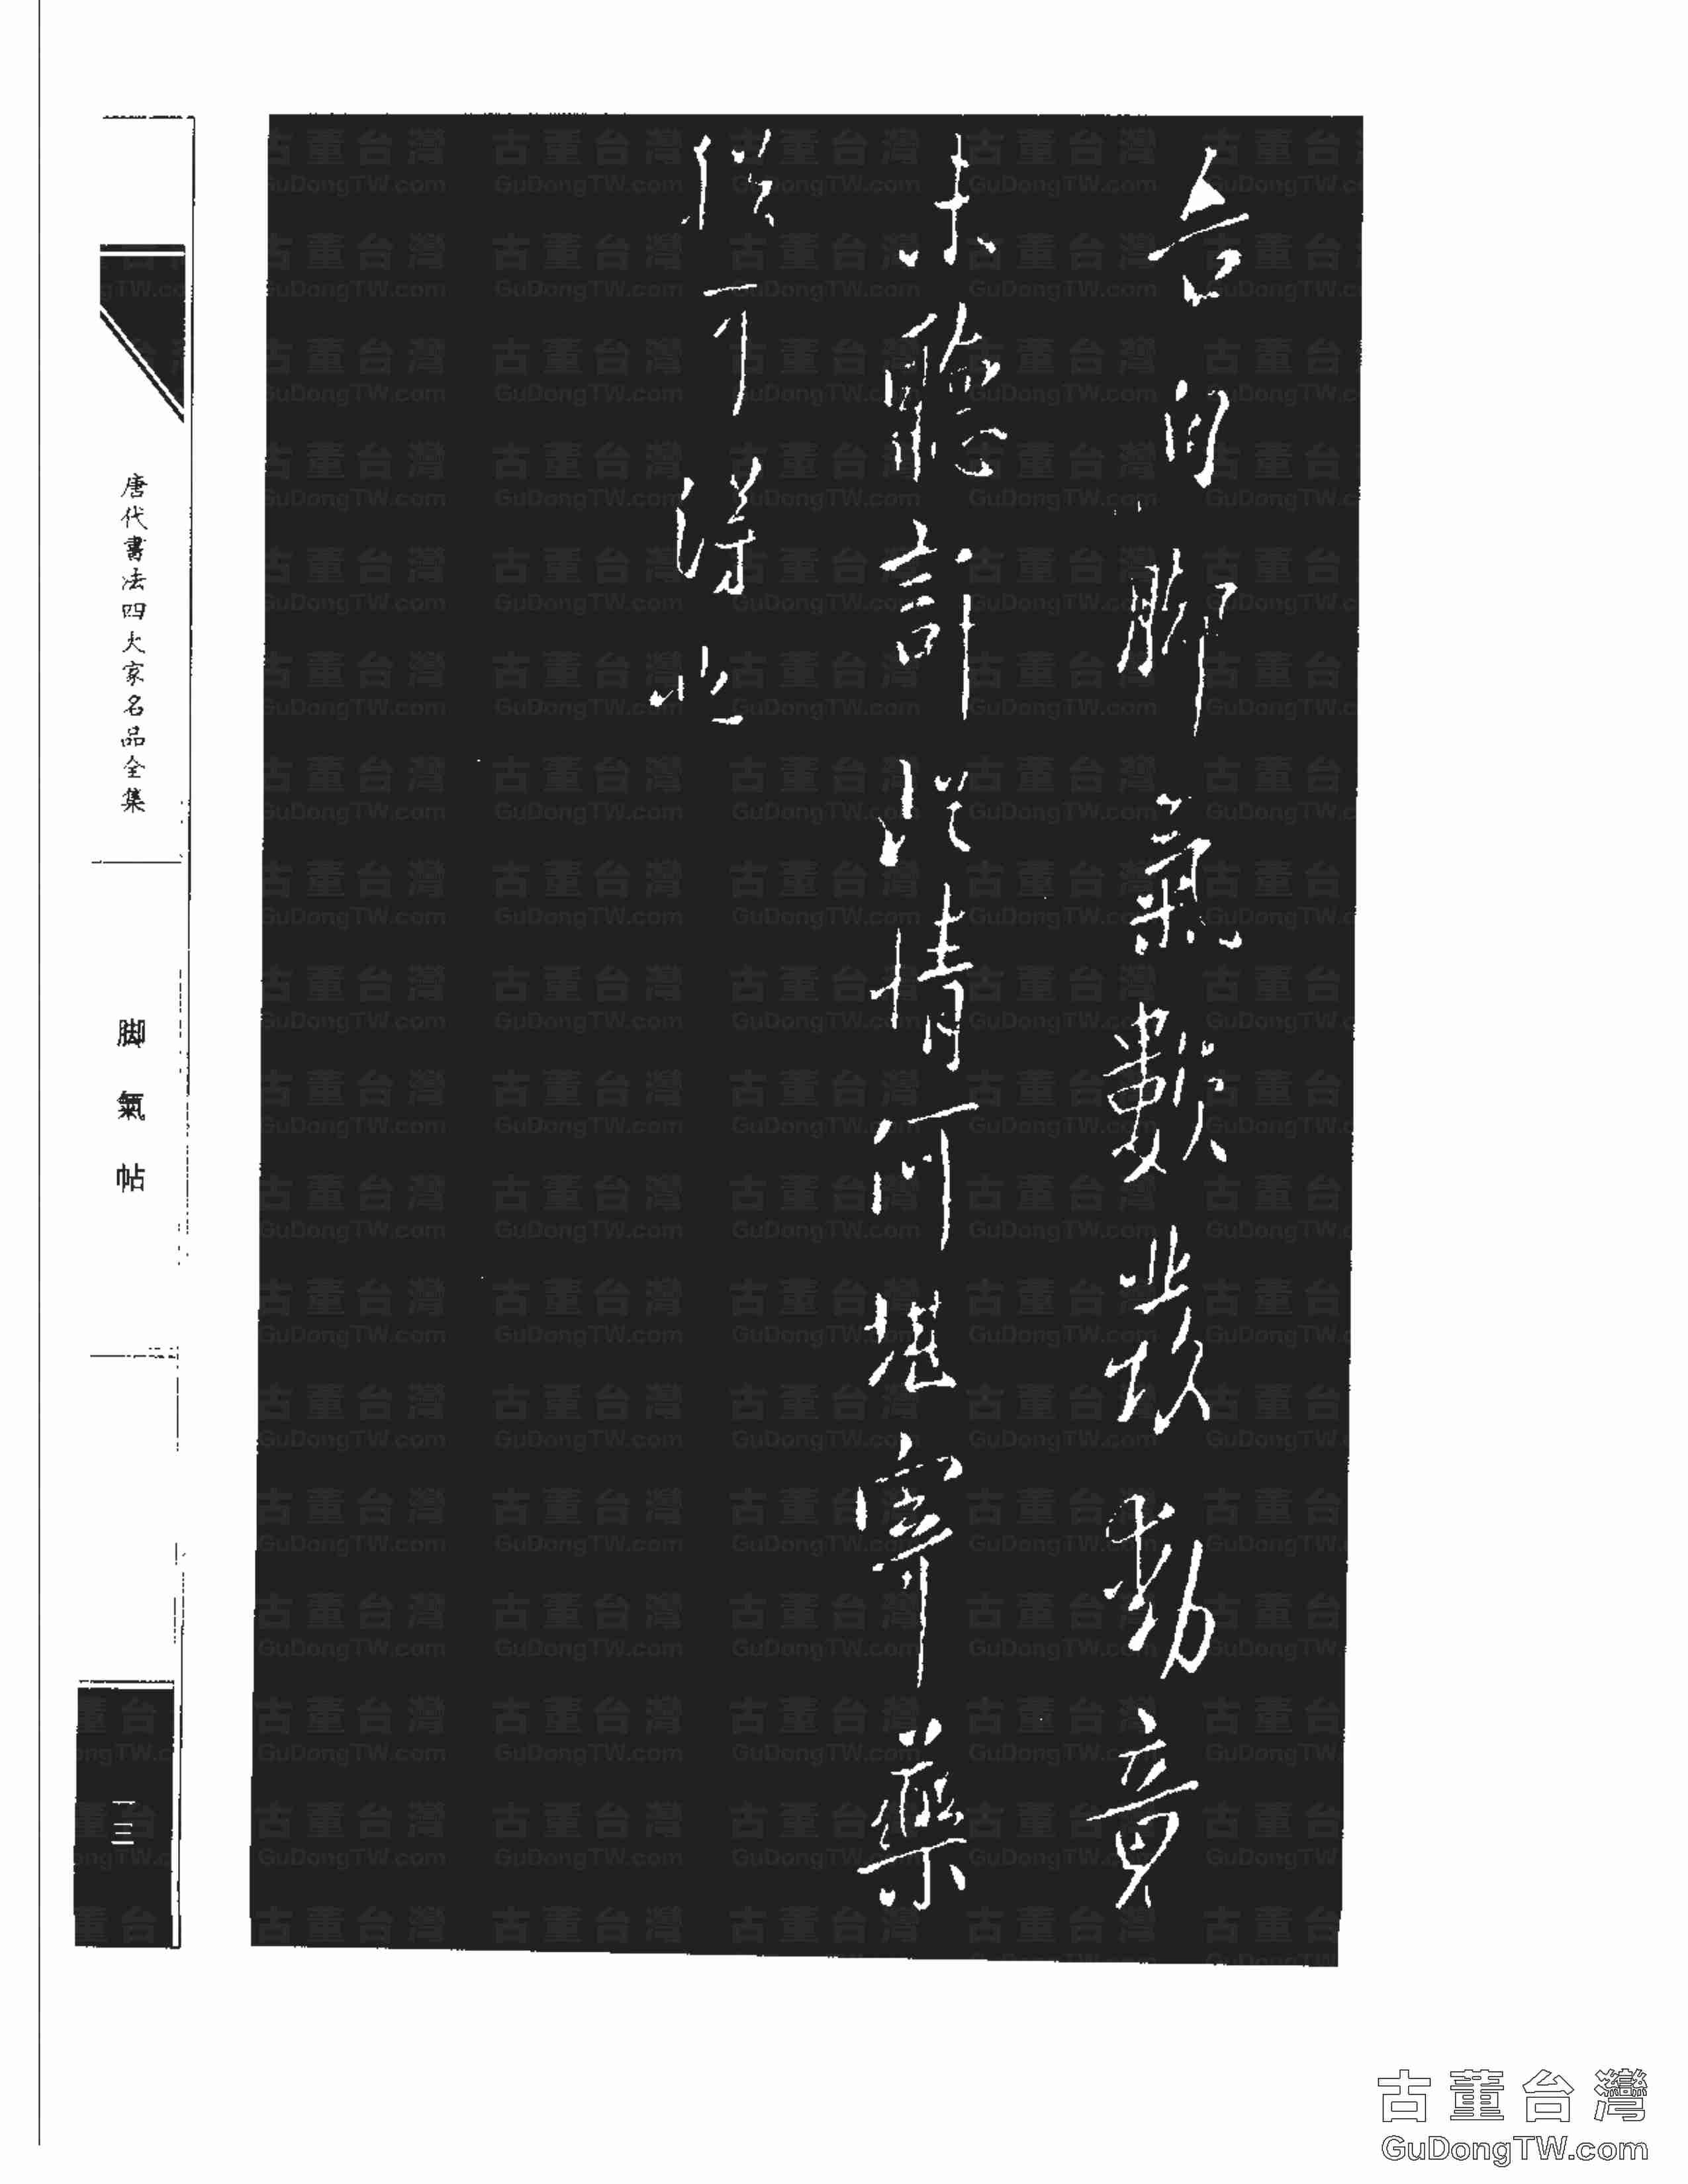 吾自脚氣數發動竟
未聽許此情何堪寄藥
猶可得也
唐代書法四大家名品全集
脚氣帖
一三
古董台灣
GuDongTW.com